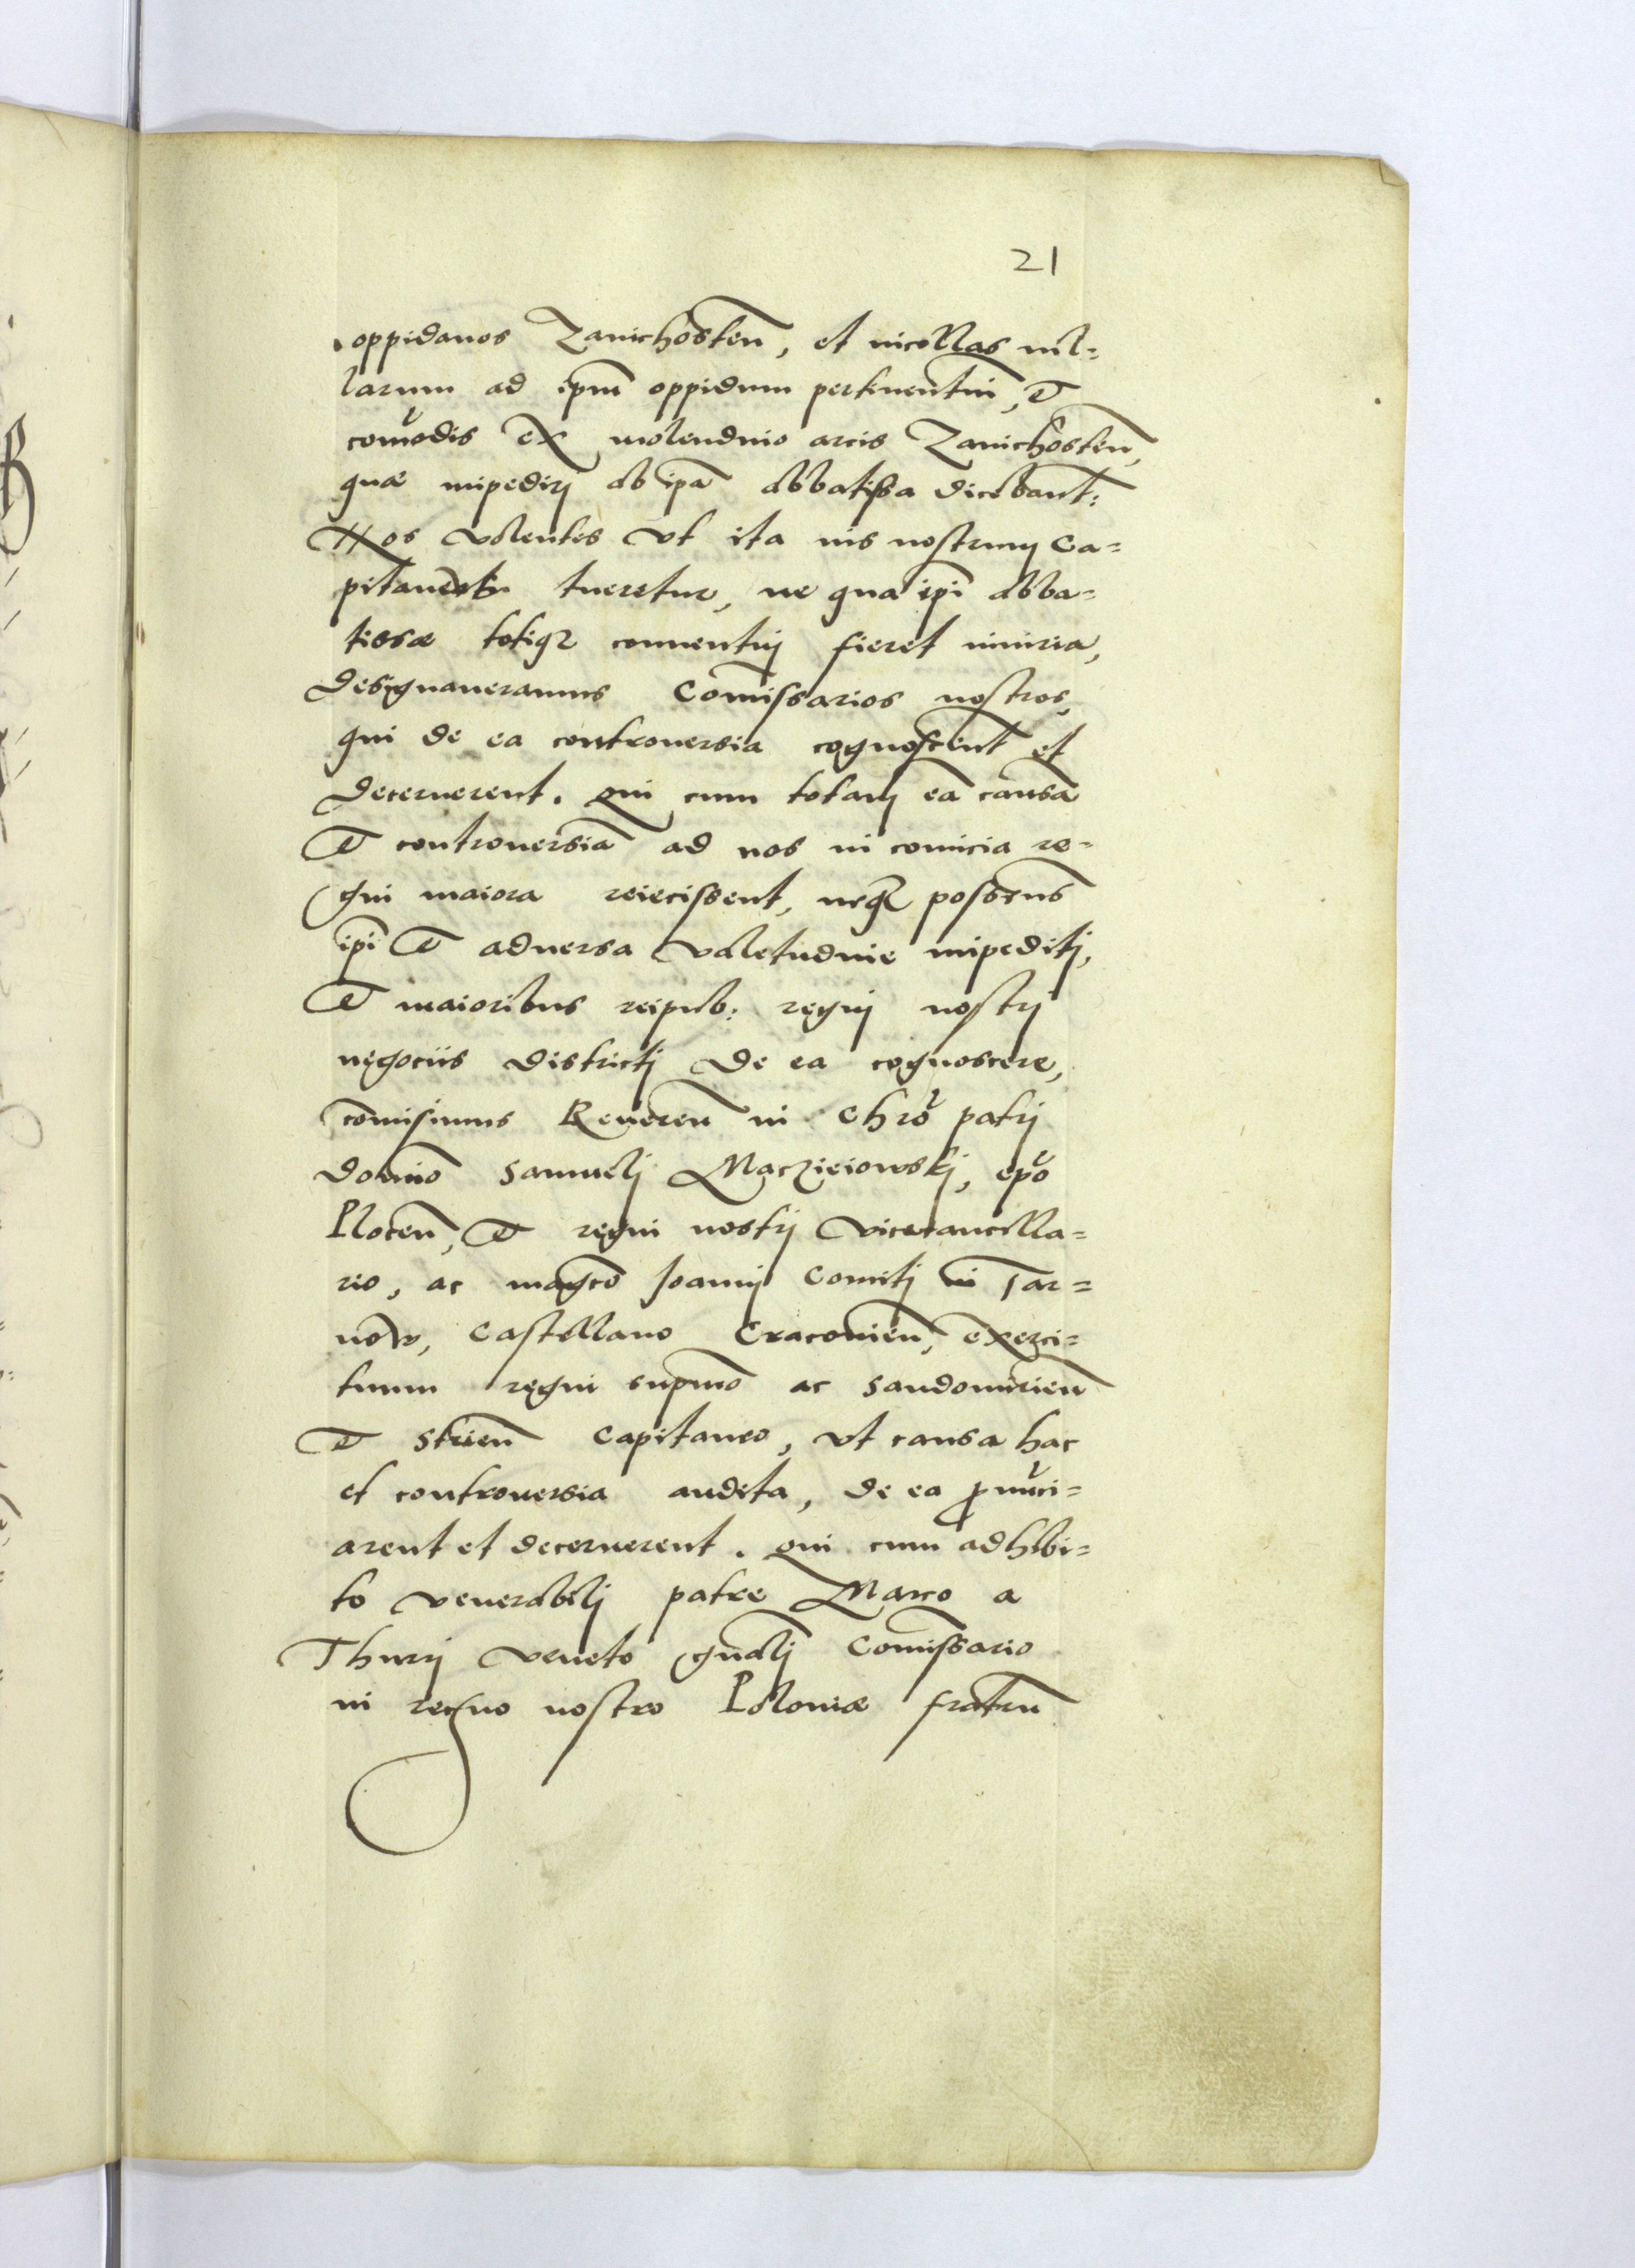 21
oppidanos Zanichosteñ, et incollas vil=
larum ad ipm̃ oppidum pertinentiũ, &
com̃odis ex molendino arcis Zanichosteñ,
quæ impedirj ab ip̃a abbatissa dicebant̃:
Nos volentes vt ita ius nostrum Ca=
pitaneatus tueretur, ne qua ip̃i abba=
tissæ totiq3 conuentuj fieret iniuria,
designaueramus Com̃issarios nostros,
qui de ea controuersia cognoscẽnt et
decernerent. Qui cum totam eã causã
& controuersiã ad nos in comicia re=
gni maiora reiecissent, neq3 possem̃us
ip̃i & aduersa valetudine impeditj,
& maioribus reipub: regnj nostrj
negociis districtj de ea cognoscere,
com̃isimus Reuereñ in Chrõ patrj
domiño Samuelj Maczieiowskj, ep̃o
Ploceñ, & regni nostrj Vicecancella=
rio, ac magcõ Joannj Comitj in Tar=
now, Castellano Cracouieñ, exerci=
tuum regni supm̃o ac Sandomirieñ
& Strieñ Capitaneo, vt causa hac
et controuersia audita, de ea ꝓnũci=
arent et decernerent. Qui cum adhibi=
to venerabilj patre Marco a
Thurrj veneto gñalj Com̃issario
in regno nostro Poloniæ fratrũ